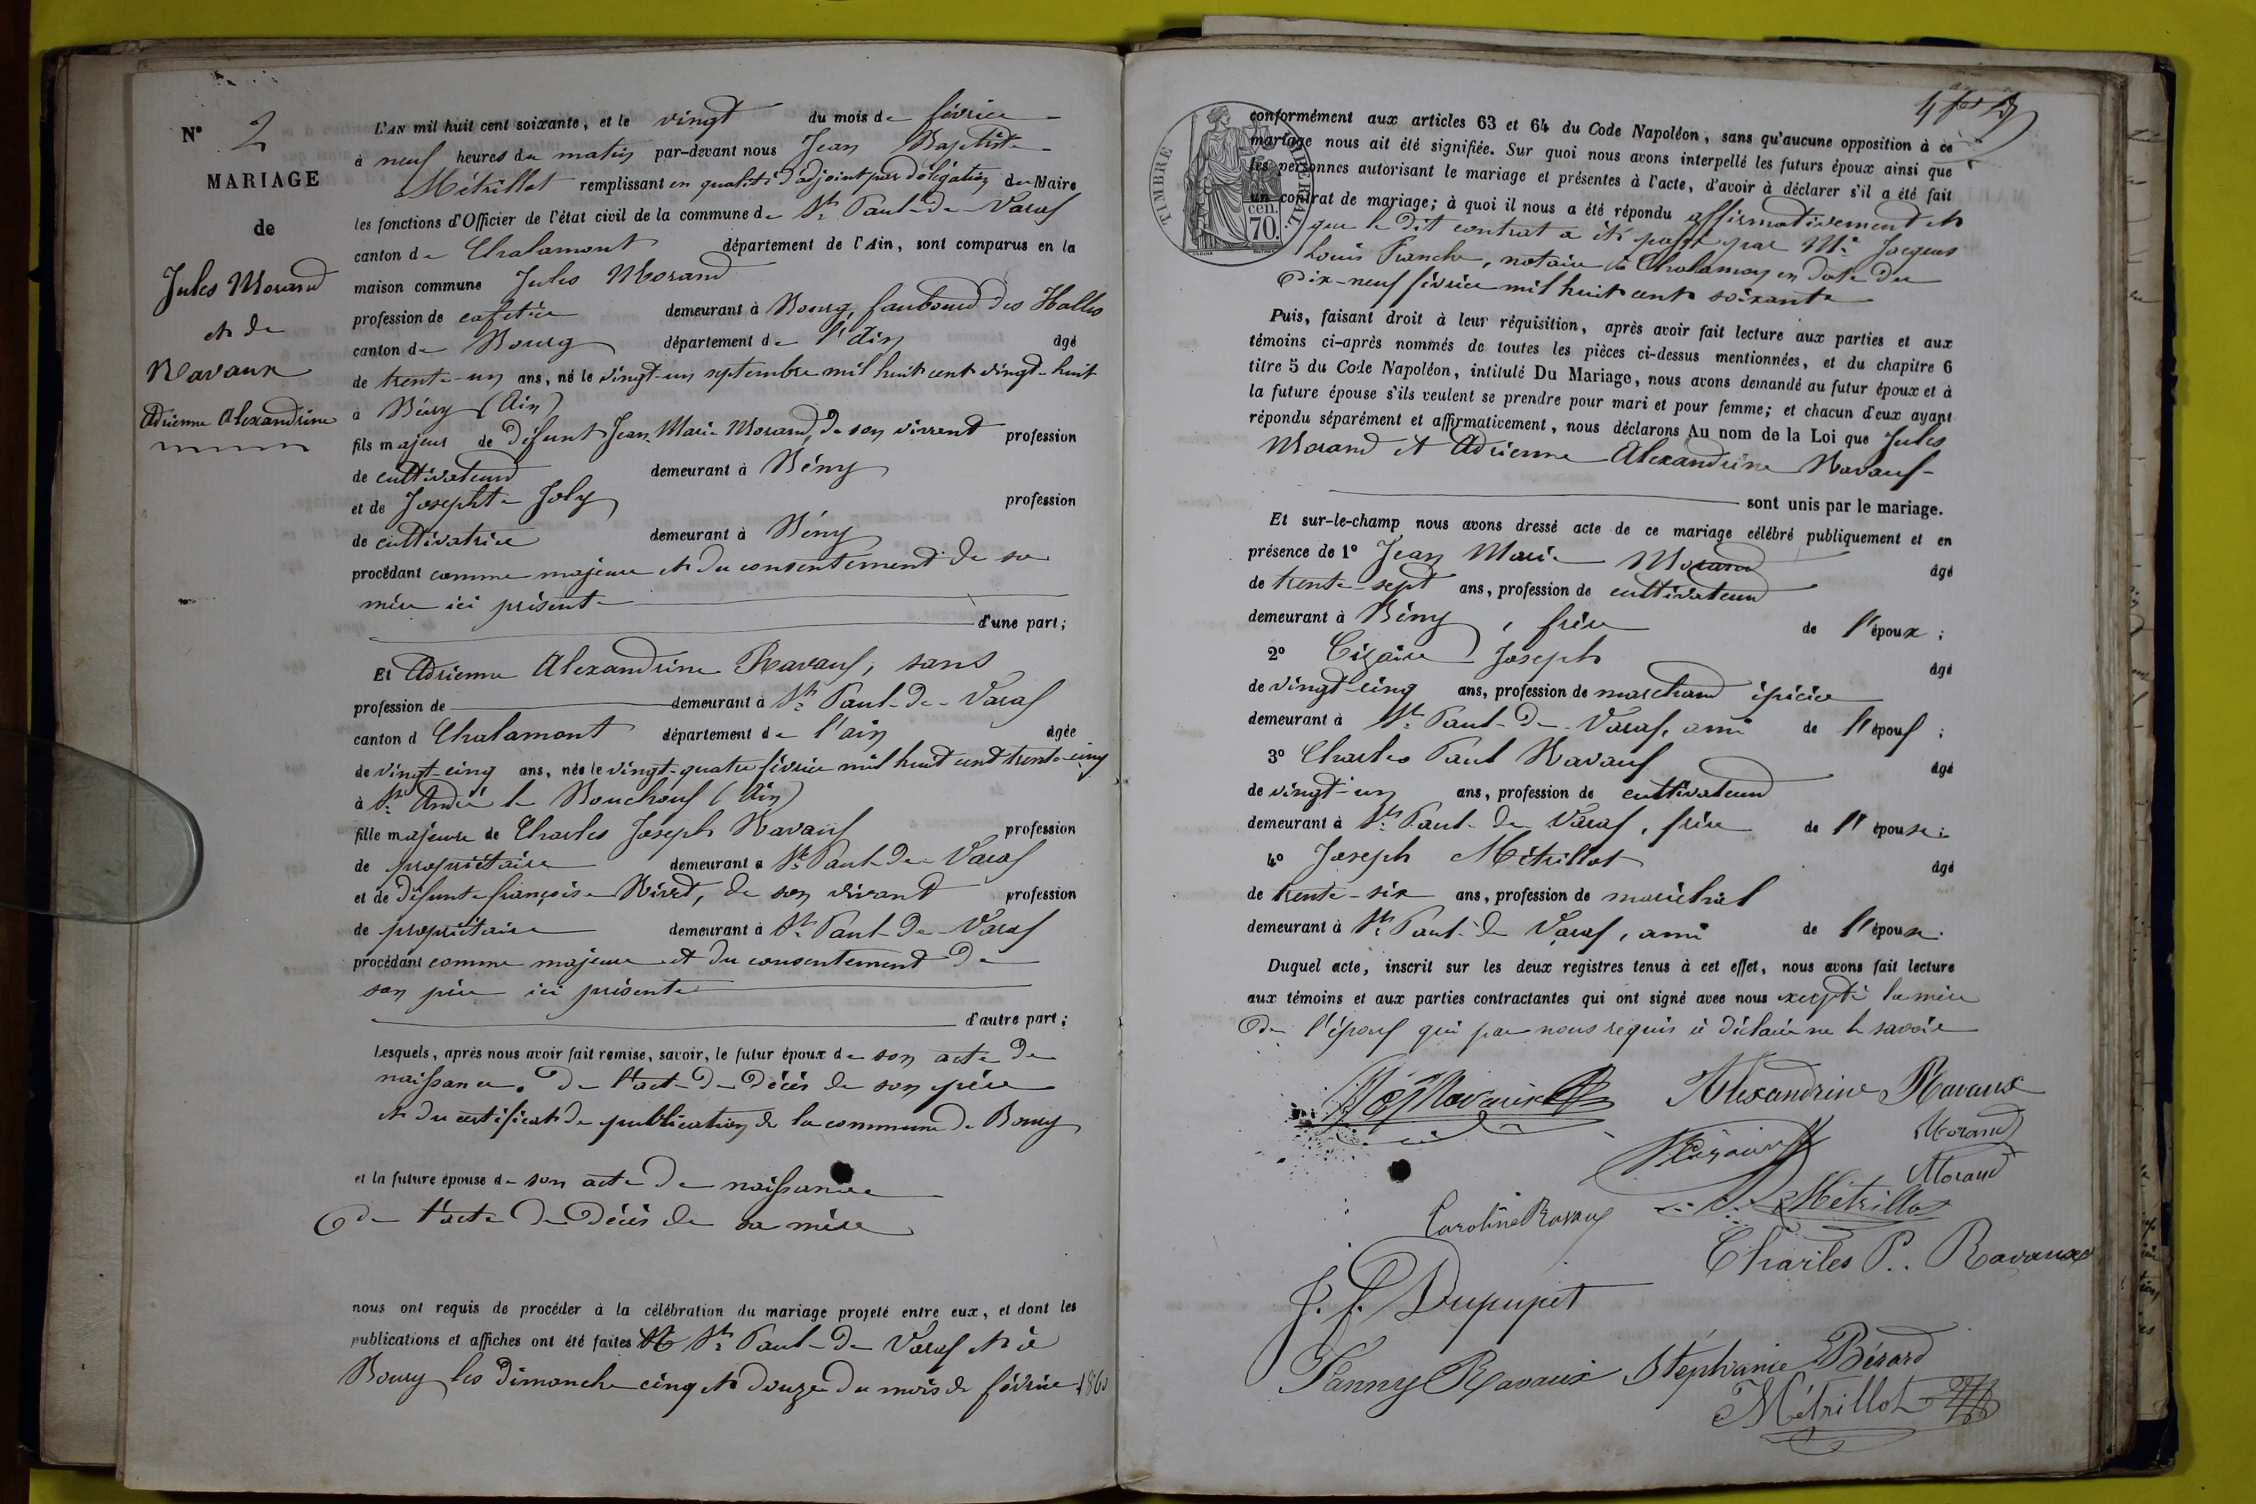 N° 2
MARIAGE
de
Jules Morand
et de
Ravaux
Adrienne Alexandrine
L'AN mil huit cent soixante, et le vingt du mois de février
à neuf heures du matin par-devant nous Jean Baptiste
Métrillot remplissant en qualité d'adjoint par délégation du Maire
les fonctions d'Officier de l'état civil de la commune de St Paul-de-Varax
canton de Chalamont département de l'Ain, sont comparus en la
maison commune Jules Morand
profession de cafetier demeurant à Bourg, faubourd des Halles
canton de Bourg département de l'Ain âgé
de trente-un ans, né le vingt-un septembre mil huit cent vingt-huit
à Bény (Ain)
fils majeur de défunt Jean Marie Morand, de son vivent profession
de cultivateur demeurant à Bény
et de Josephte Joly profession
de cultivatrice demeurant à Bény
procédant comme majeur et du consentement de sa
mère ici présente
d'une part;
Et Adrienne Alexandrine Ravaux, sans
profession de demeurant à St Paul-de-Varax
canton d Chalamont département de l'ain âgée
de vingt-cinq ans, née le vingt-quatre février mil huit cent trente-cinq
à St André le Bouchoux (Ain)
fille majeure de Charles Joseph Ravaux profession
de propriétaire demeurant à St Paul-de-Varax
et de défunte françoise Rivet, de son vivant profession
de propriétaire demeurant à St Paul-de-Varax
procédant comme majeure et du consentement de
son père ici présente
d'autre part;
Lesquels, après nous avoir fait remise, savoir, le futur époux de son acte de
naissance, de l'acte de décès de son père
et du certificat de publication de la commune de Bourg
et la future épouse de son acte de naissance
de l'acte de décès de sa mère
nous ont requis de procéder à la célébration du mariage projeté entre eux, et dont les
publications et affiches ont été faites à St Paul-de-Varax et à
Bourg les dimanche cinq et douze du mois de février 1860
TIMBRE IMPERIAL
cen.
70.
conformément aux articles 63 et 64 du Code Napoléon, sans qu'aucune opposition à ce
mariage nous ait été signifiée. Sur quoi nous avons interpellé les futurs époux ainsi que
les personnes autorisant le mariage et présentes à l'acte, d'avoir à déclarer s'il a été fait
un contrat de mariage; à quoi il nous a été répondu affirmativement et
que le dit contrat a été passé par Me Jacques
Louis Franche, notaire à Chalamont en date du
dix-neuf février mil huit cent soixante
Puis, faisant droit à leur réquisition, après avoir fait lecture aux parties et aux
témoins ci-après nommés de toutes les pièces ci-dessus mentionnées, et du chapitre 6
titre 5 du Code Napoléon, intitulé Du Mariage, nous avons demandé au futur époux et à
la future épouse s'ils veulent se prendre pour mari et pour femme; et chacun d'eux ayant
répondu séparément et affirmativement, nous déclarons Au nom de la Loi que Jules
Morand et Adrienne Alexandrine Ravaux
sont unis par le mariage.
Et sur-le-champ nous avons dressé acte de ce mariage célébré publiquement et en
présence de 1° Jean Marie Morand âgé
de trente-sept ans, profession de cultivateur
demeurant à Bény, frère de l'époux;
2° Cizaire Joseph âgé
de vingt-cinq ans, profession de marchand épicier
demeurant à St Paul-de-Varax, ami de l'époux;
3° Charles Paul Ravaux âgé
de vingt-un ans, profession de cultivateur
demeurant à St Paul-de Varax, frère de l'épouse;
4° Joseph Métrillot âgé
de trente-six ans, profession de maréchal
demeurant à St Paul-de Varax, ami de l'épouse.
Duquel acte, inscrit sur les deux registres tenus à cet effet, nous avons fait lecture
aux témoins et aux parties contractantes qui ont signé avec nous excepté la mère
de l'époux qui par nous requis à déclaré ne le savoir
Ravaux
Alexandrine Ravaux
Morand
Cizaire
Morand
Métrillot
Caroline Ravaux
Charles P. Ravaux
J. f. Dupupet
Fanny Ravaux Stéphanie Bérard
Métrillot